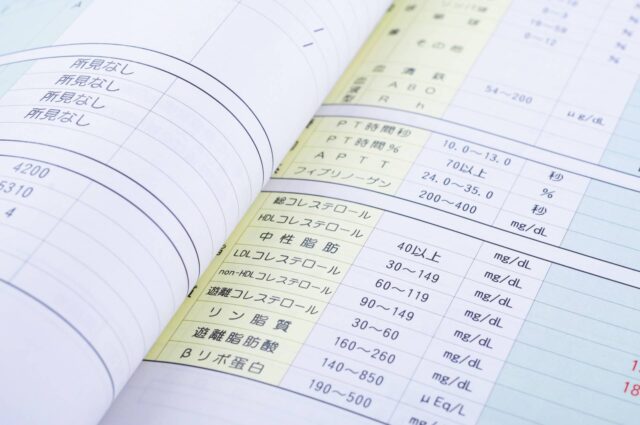 所見なし
所見なし
所見なし
所見なし
4200
5310
4
単球
その他
0～12
血清鉄 54～200 μg/dL
ABO
Rh
PT時間秒 10.0～13.0 秒
PT時間% 70以上 %
APTT 24.0～35.0 秒
フィブリノーゲン 200～400 mg/dL
総コレステロール mg/dL
HDLコレステロール 40以上 mg/dL
中性脂肪 30～149 mg/dL
LDLコレステロール 60～119 mg/dL
non-HDLコレステロール 90～149 mg/dL
遊離コレステロール 30～60 mg/dL
リン脂質 160～260 mg/dL
遊離脂肪酸 140～850 μEq/L
βリポ蛋白 190～500